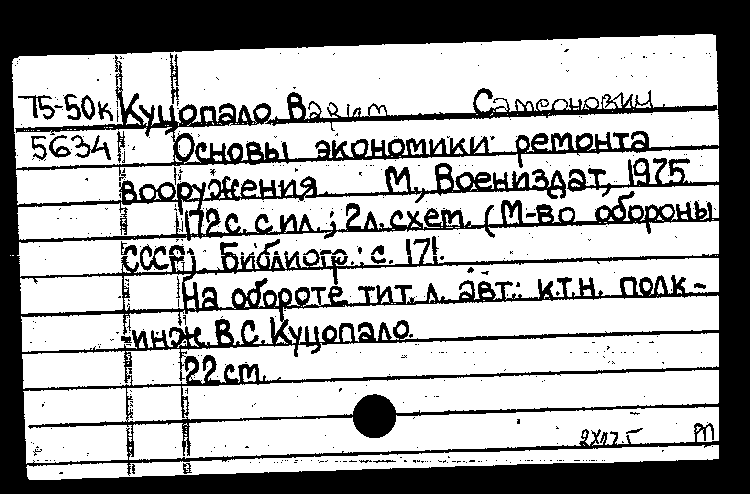 75-50к Куцопало, В Самсонович
5634 Основы экономики ремонта
вооружения. М., Воениздат, 1975
172 с. с ил.; 2 л. схем. (М-во обороны
СССР). Библиогр.: с. 171.
На обороте тит. л. авт.: к.т.н. полк-
-инж. В.С. Куцопало.
22 см.